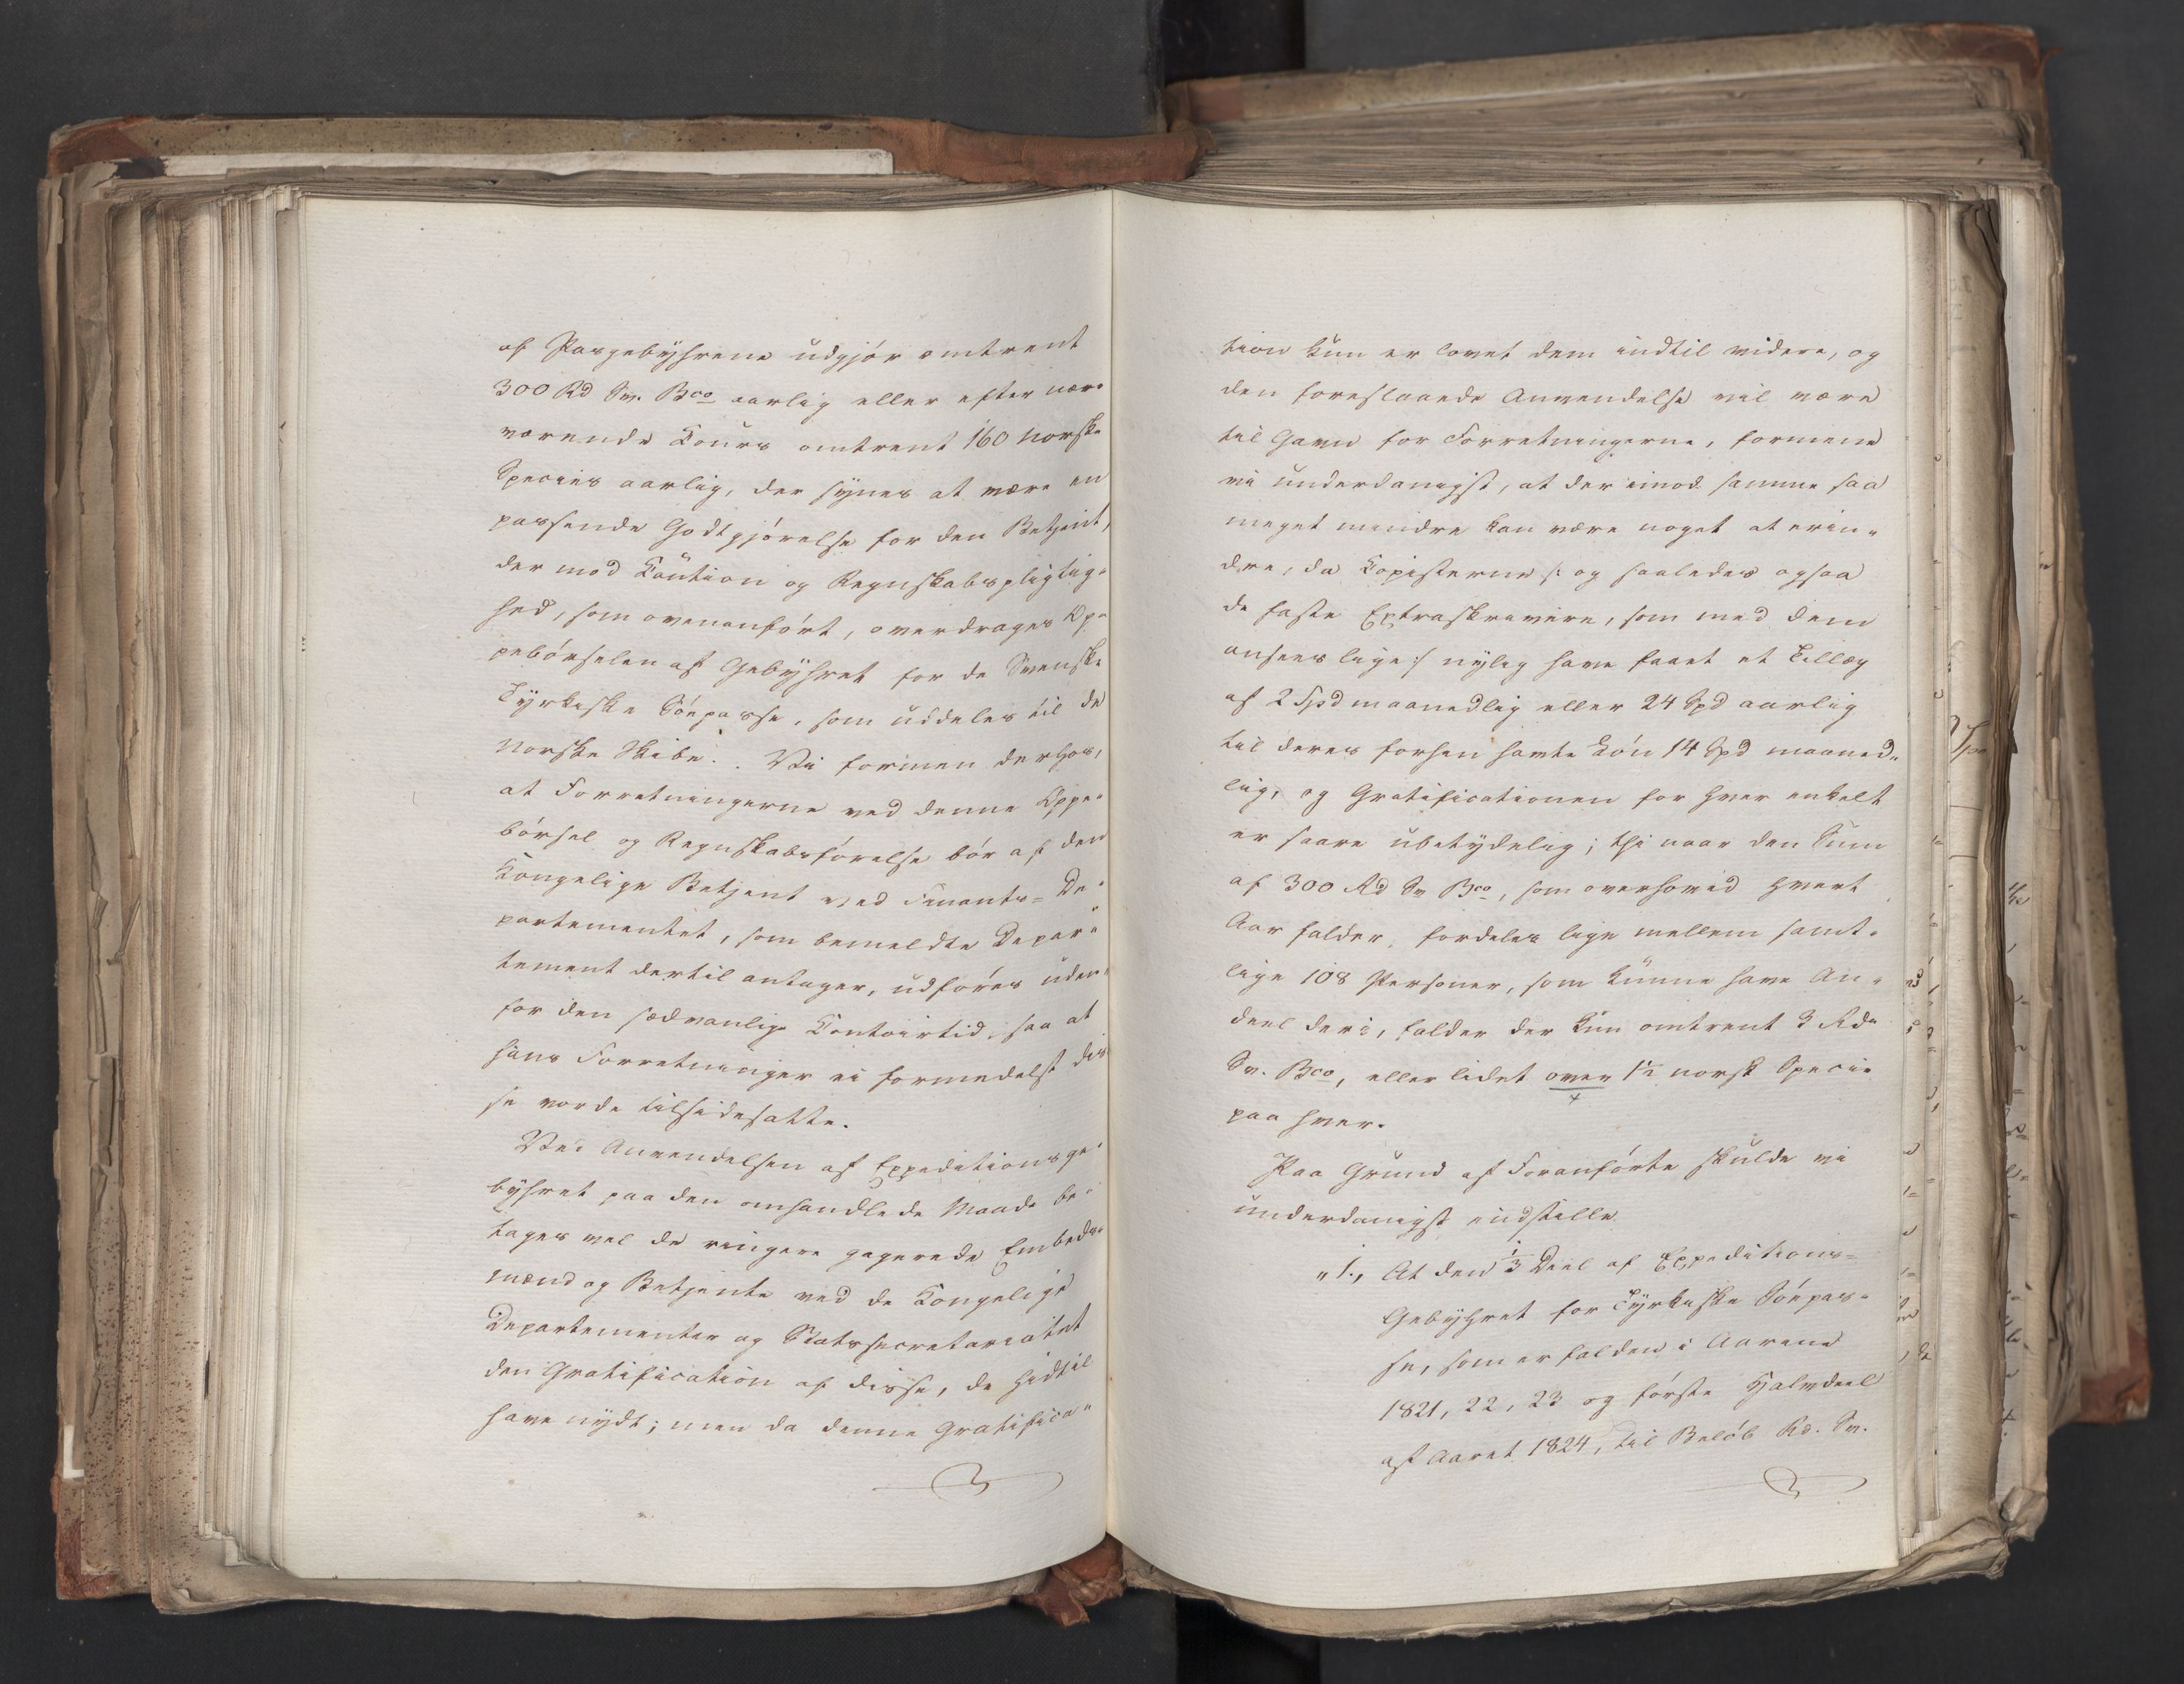 af Pasgebyhrene udgjør omtrent
300 Rd Sv. Bco aarlig eller efter nær-
værende Cours omtrent 160 norske
Species aarlig, der synes at være en
passende Godtgjørelse for den Betjent,
der mod Caution og Regnskabspligtig-
hed, som ovenanført, overdrages Op-
pebørselen af Gebyhret for de Svenske
Tyrkiske Søepasse, som uddeles til de
Norske Skibe. Vi formene derhos,
at Forretningerne ved denne Oppe-
børsel og Regnskabsførelse bør af den
Kongelige Betjent ved Finants-De-
partementet, som bemeldte Depar-
tement dertil antager, udføres uden
for den sædvanlige Contoirtid, saa at
hans Forretninger ei formedelst dis-
se vorde tilsidesatte.
Ved Anvendelsen af Expeditionsge-
byhret paa den omhandlede Maade be-
tages vel de ringere gagerede Embeds-
mænd og Betjente ved de Kongelige
Departementer og Statssecretariatet
den Gratification af disse, de hidtil
have nydt; men da denne Gratifica-
tion kun er lovet dem indtil videre, og
den foreslaaede Anvendelse vil være
til Gavn for Forretningerne, formene
vi underdanigst, at der imod samme saa
meget mindre kan være noget at erin-
dre, da Copisterne /: og saaledes ogsaa
de faste Extraskrivere, som med dem
ansees lige :/ nylig have faaet et Tillæg
af 2 Spd maanedlig eller 24 Spd aarlig
til deres forhen havte Løn 14 Spd maaned-
lig, og Gratificationen for hver enkelt
er saare ubetydelig; thi naar den Sum
af 300 Rd Sv Bco, som overhoved hvert
Aar falder, fordeles lige mellem samt-
lige 108 Personer, som kunne have An-
deel deri, falder der kun omtrent 3 Rd
Sv. Bco, eller lidet over 1½ norsk Specie
paa hver.
Paa Grund af Foranførte skulde vi
underdanigst indstille
"1., At den 1/3 Deel af Expeditions-
Gebyhret for Tyrkiske Søepas-
se, som er falden i Aarene
1821, 22, 23 og første Halvdeel
af Aaret 1824, til Beløb Rd. Sv.